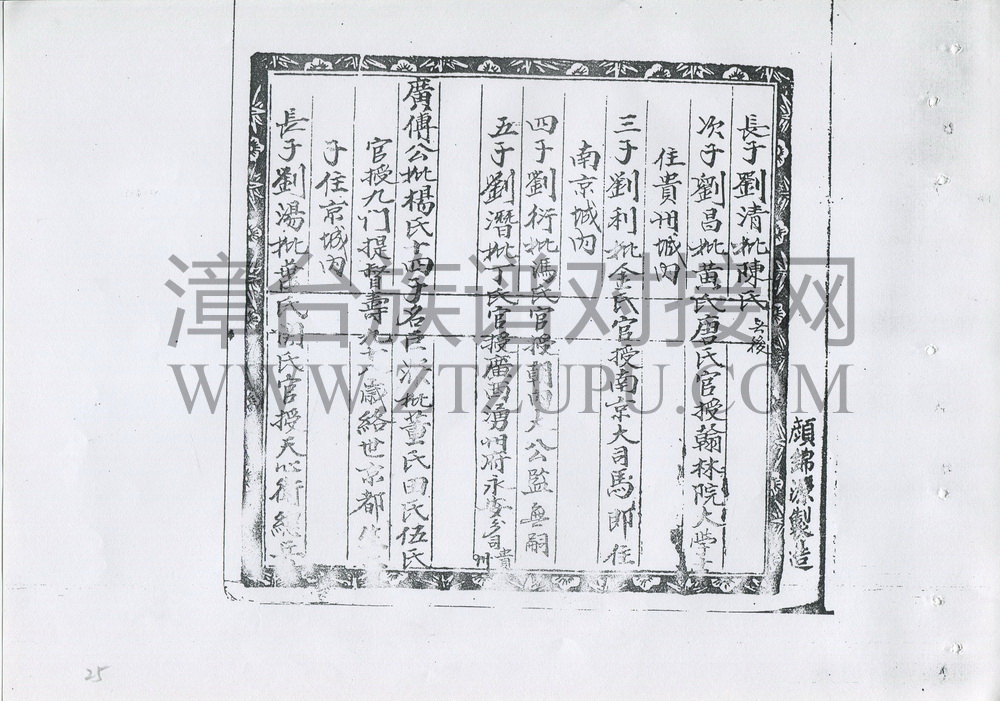 長子劉清批陳氏 无後
次子劉昌批黃氏唐氏官授翰林院大學士
住貴州城內
三子劉利批金氏官授南京大司馬即住
南京城內
四子劉衍批馮氏官授朝內太公監無嗣
五子劉潛批丁氏官授廣西潯州府永安分司貴州
廣傅公批楊氏十四子名巨 批董氏田氏伍氏
官授九门提督壽九十八歲絡世京都
子住京城內
長子劉湯批 氏 氏官授天心衛總
顏錦 製造
漳台族谱对接网
WWW.ZTZUPU.COM
25